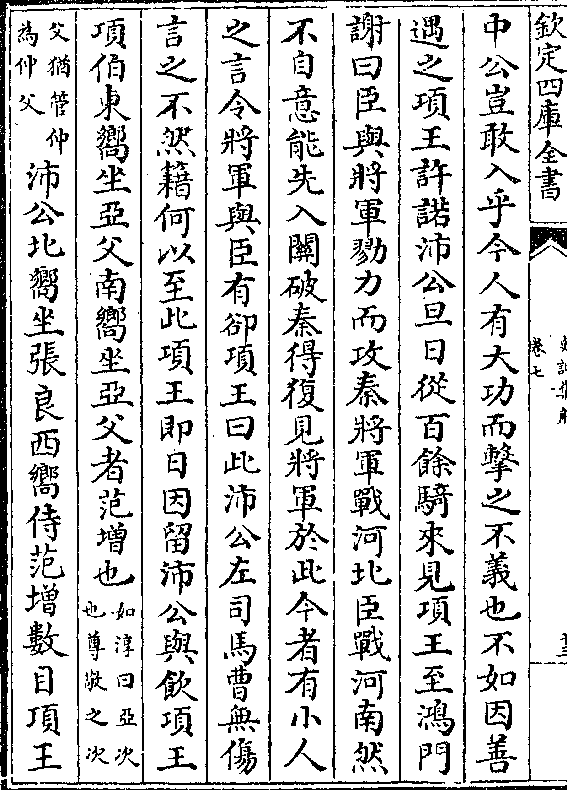 欽定四庫全書
史記集解
卷七
十三
中公豈敢入乎今人有大功而擊之不義也不如因善
遇之項王許諾沛公旦日從百餘騎來見項王至鴻門
謝曰臣與將軍勠力而攻秦將軍戰河北臣戰河南然
不自意能先入關破秦得復見將軍於此今者有小人
之言令將軍與臣有郤項王曰此沛公左司馬曹無傷
言之不然籍何以至此項王即日因留沛公與飲項王
項伯東嚮坐亞父南嚮坐亞父者范增也如淳曰亞次也尊敬之次
父猶管仲為仲父沛公北嚮坐張良西嚮侍范增數目項王